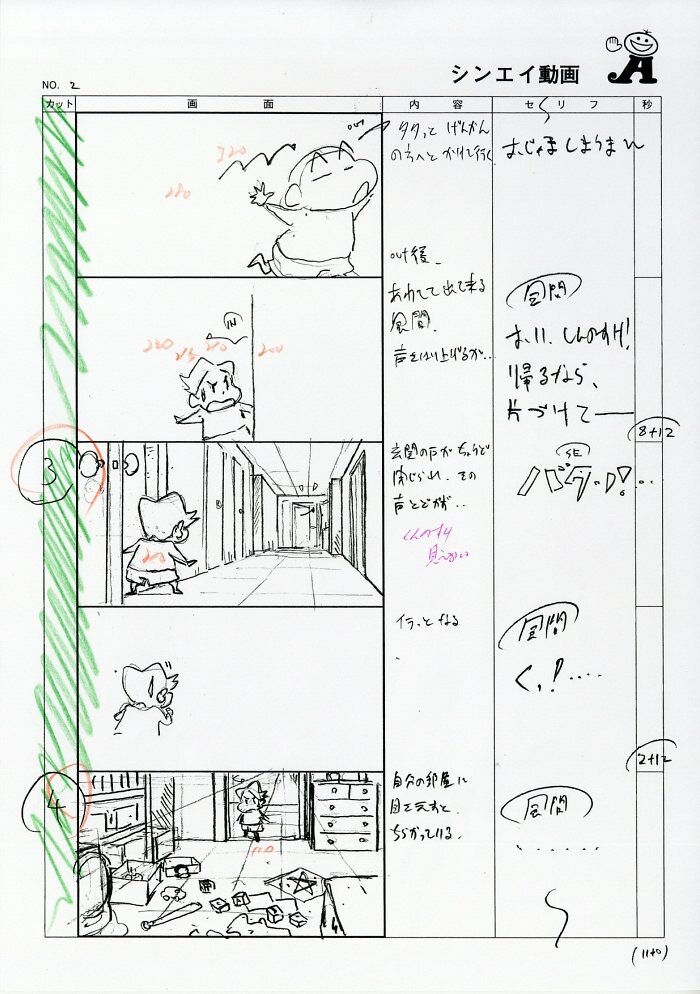 シンエイ動画
NO. 2
カット 画面 内容 セリフ 秒
out
320
280
タタッと げんかん
の方へと かけて行く
おじゃましまうま〜
out後、
あわてて出て来る
風間、
声をはり上げるが‥
IN
200
風間
お、いい、しんのすけ!
帰るなら、
片づけてー
8+12
3
玄関の戸がちょうど
閉じられ、その
声とどかず‥
しんのすけ
見えない
SE
バターッ!‥
イラッとなる
風間
くっ!‥‥
2+12
4
自分の部屋に
目を示すと
ちらかっている。
110
風間
‥‥‥
(11+0)